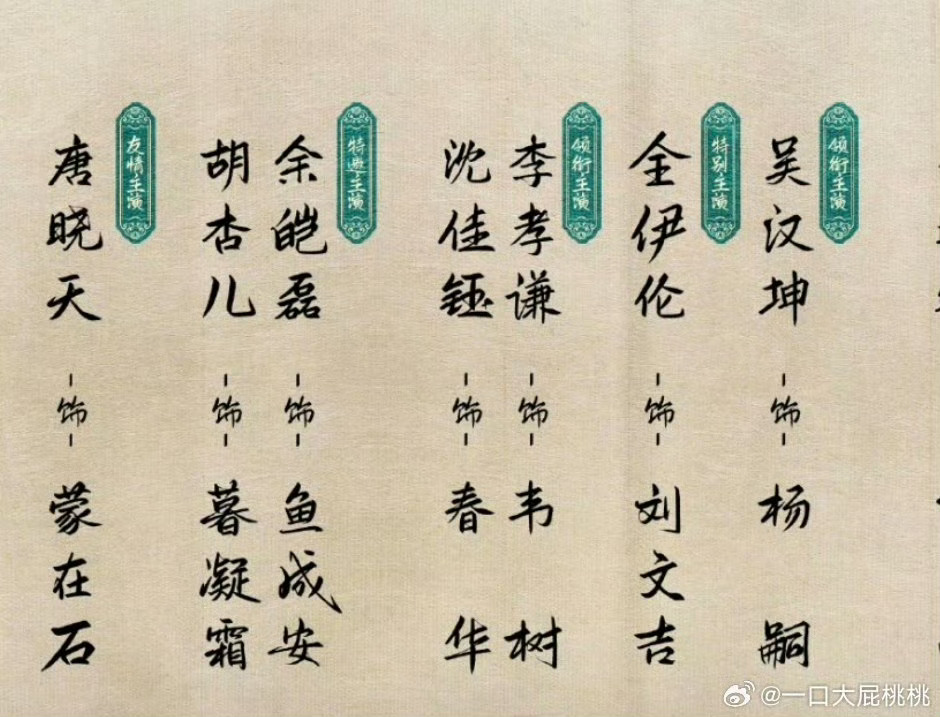 领衔主演
吴汉坤
饰
杨嗣
特别主演
全伊伦
饰
刘文吉
领衔主演
李孝谦
饰
韦树
沈佳钰
饰
春华
特邀主演
余皑磊
饰
鱼成安
胡杏儿
饰
暮凝霜
友情主演
唐晓天
饰
蒙在石
@一口大屁桃桃